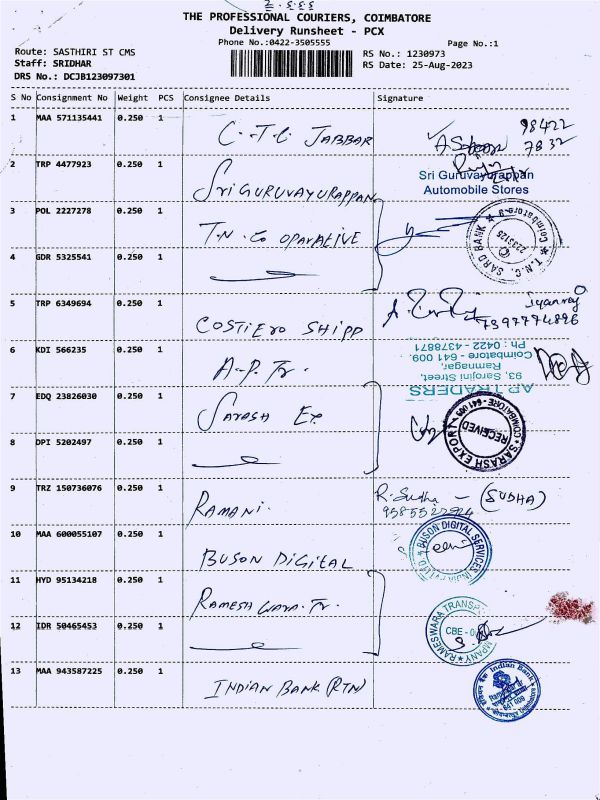 THE PROFESSIONAL COURIERS, COIMBATORE
Delivery Runsheet - PCX
Phone No.:0422-3505555
Page No.:1
Route: SASTHIRI ST CMS
RS No.: 1230973
Staff: SRIDHAR
RS Date: 25-Aug-2023
DRS No.: DCJB123097301
S No Consignment No Weight PCS Consignee Details Signature
1 MAA 571135441 0.250 1 C.T.C. JABBAR 98422
2 TRP 4477923 0.250 1 SRI GURUVAYURAPPAN
Sri Guruvayurappan
Automobile Stores
3 POL 2227278 0.250 1 T.N. CO OPARATIVE
T.N.C. SARD BANK Coimbatore-9
2235125
4 GDR 5325541 0.250 1
5 TRP 6349694 0.250 1 COSTIERO SHIPP
7397774896
6 KDI 566235 0.250 1 A.P. Tr.
AP TRADERS
93, Sarojini Street,
Ramnagar,
Coimbatore - 641 009.
Ph : 0422 - 4378871
7 EDQ 23826030 0.250 1
SARASH EXPORT COIMBATORE - 641 009
RECEIVED
8 DPI 5202497 0.250 1
9 TRZ 150736076 0.250 1 RAMANI. R. Sudha - (SUDHA)
10 MAA 600055107 0.250 1 BUSON DIGITAL
BUSON DIGITAL SERVICES
11 HYD 95134218 0.250 1 RAMESWARA. Tr.
12 IDR 50465453 0.250 1
RAMESWARA TRANSPORT COMPANY
CBE
13 MAA 943587225 0.250 1 INDIAN BANK (RTN)
Indian Bank
641 009